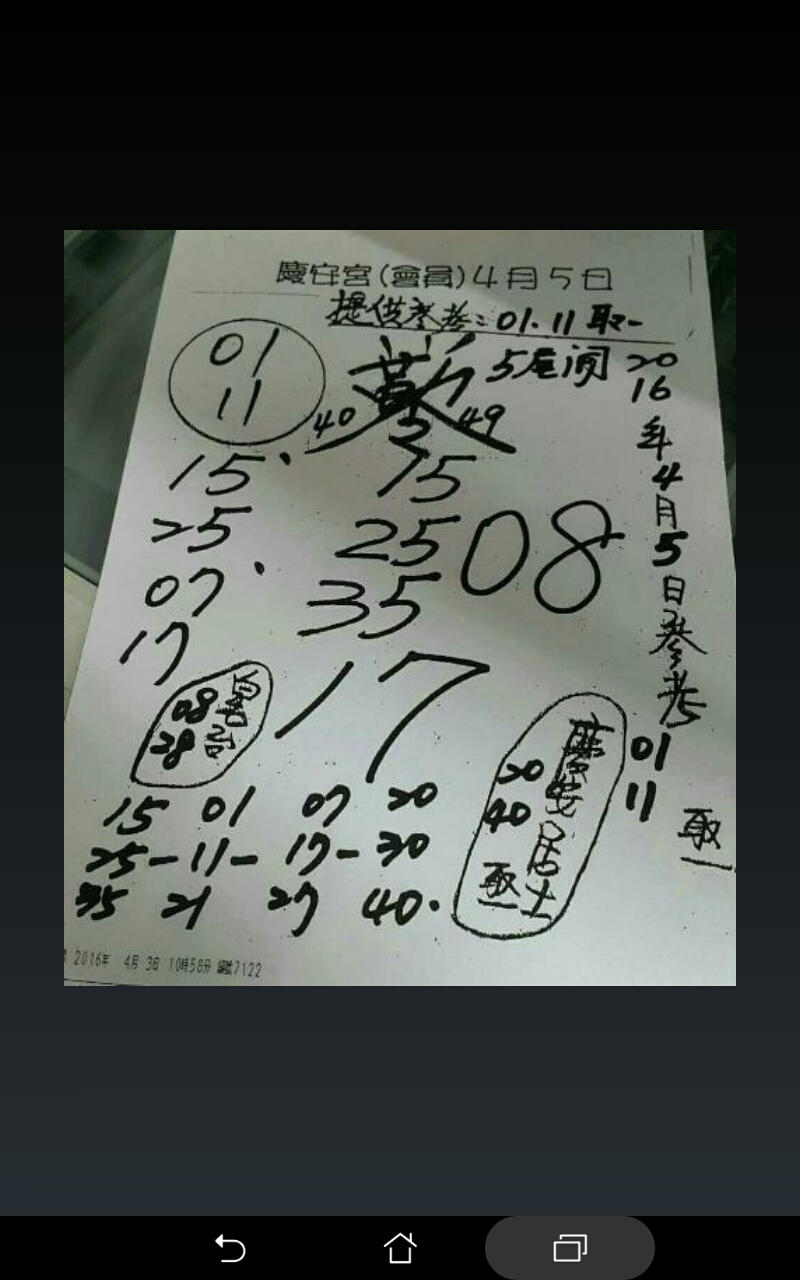 慶安宮(會員)4月5日
提供參考:01.11取一
01
11
5尾開
40 49
15 15
25 25
08
07 35
17 17
08
28
20
16
年
4
月
5
日
參
考
01
11
取一
慶安居士
20
40
取一
15 01 07 20
25-11-17-30
35 21 27 40.
2016年 4月 3日 10時58分 編號7122